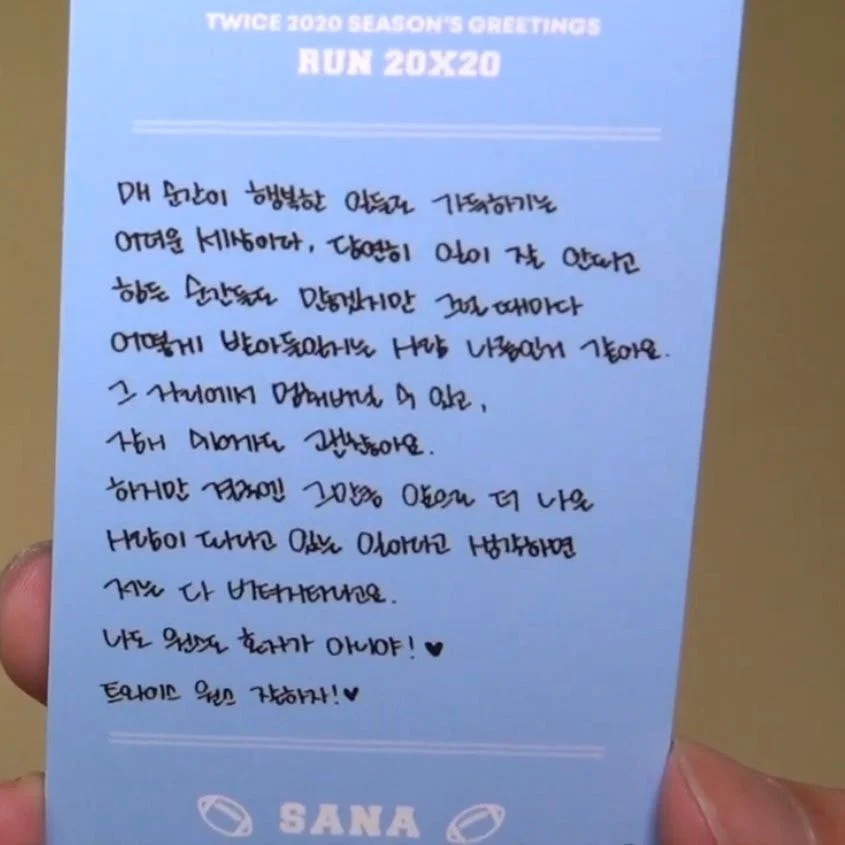 TWICE 2020 SEASON'S GREETINGS
RUN 20X20
매 순간이 행복한 일들로 가득하기는
어려운 세상이다. 당연히 일이 잘 안되고
힘든 순간들도 많겠지만 그럴 때마다
어떻게 받아들일지는 사람 나름인거 같아요.
그 자리에서 멈춰버릴 수 있고,
잠시 쉬어가도 괜찮아요.
하지만 결국엔 그만큼 앞으로 더 나은
사람이 되려고 있는 일이라고 생각하면
저는 다 버텨지더라고요.
나도 원스도 혼자가 아니야! ♥
트와이스 원스 잘하자! ♥
SANA